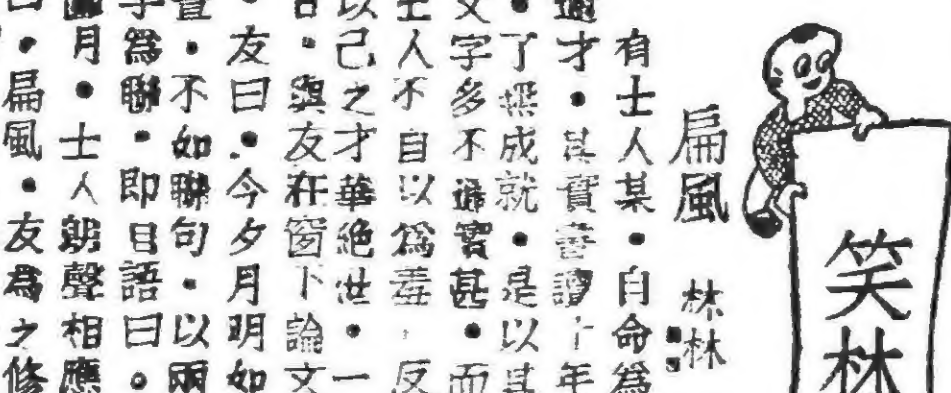 笑林
扁風 林林
有士人某・自命為
通才・其實書讀十年
・了無成就・是以其
文字多不通實甚・而
士人不自以為羞・反
以己之才華絕世・一
日・與友在窗下論文
・友曰・今夕月明如
晝・不如聯句・以兩
字為聯・即自語曰。
圓月・士人朗聲相應
曰・扁風・友為之修